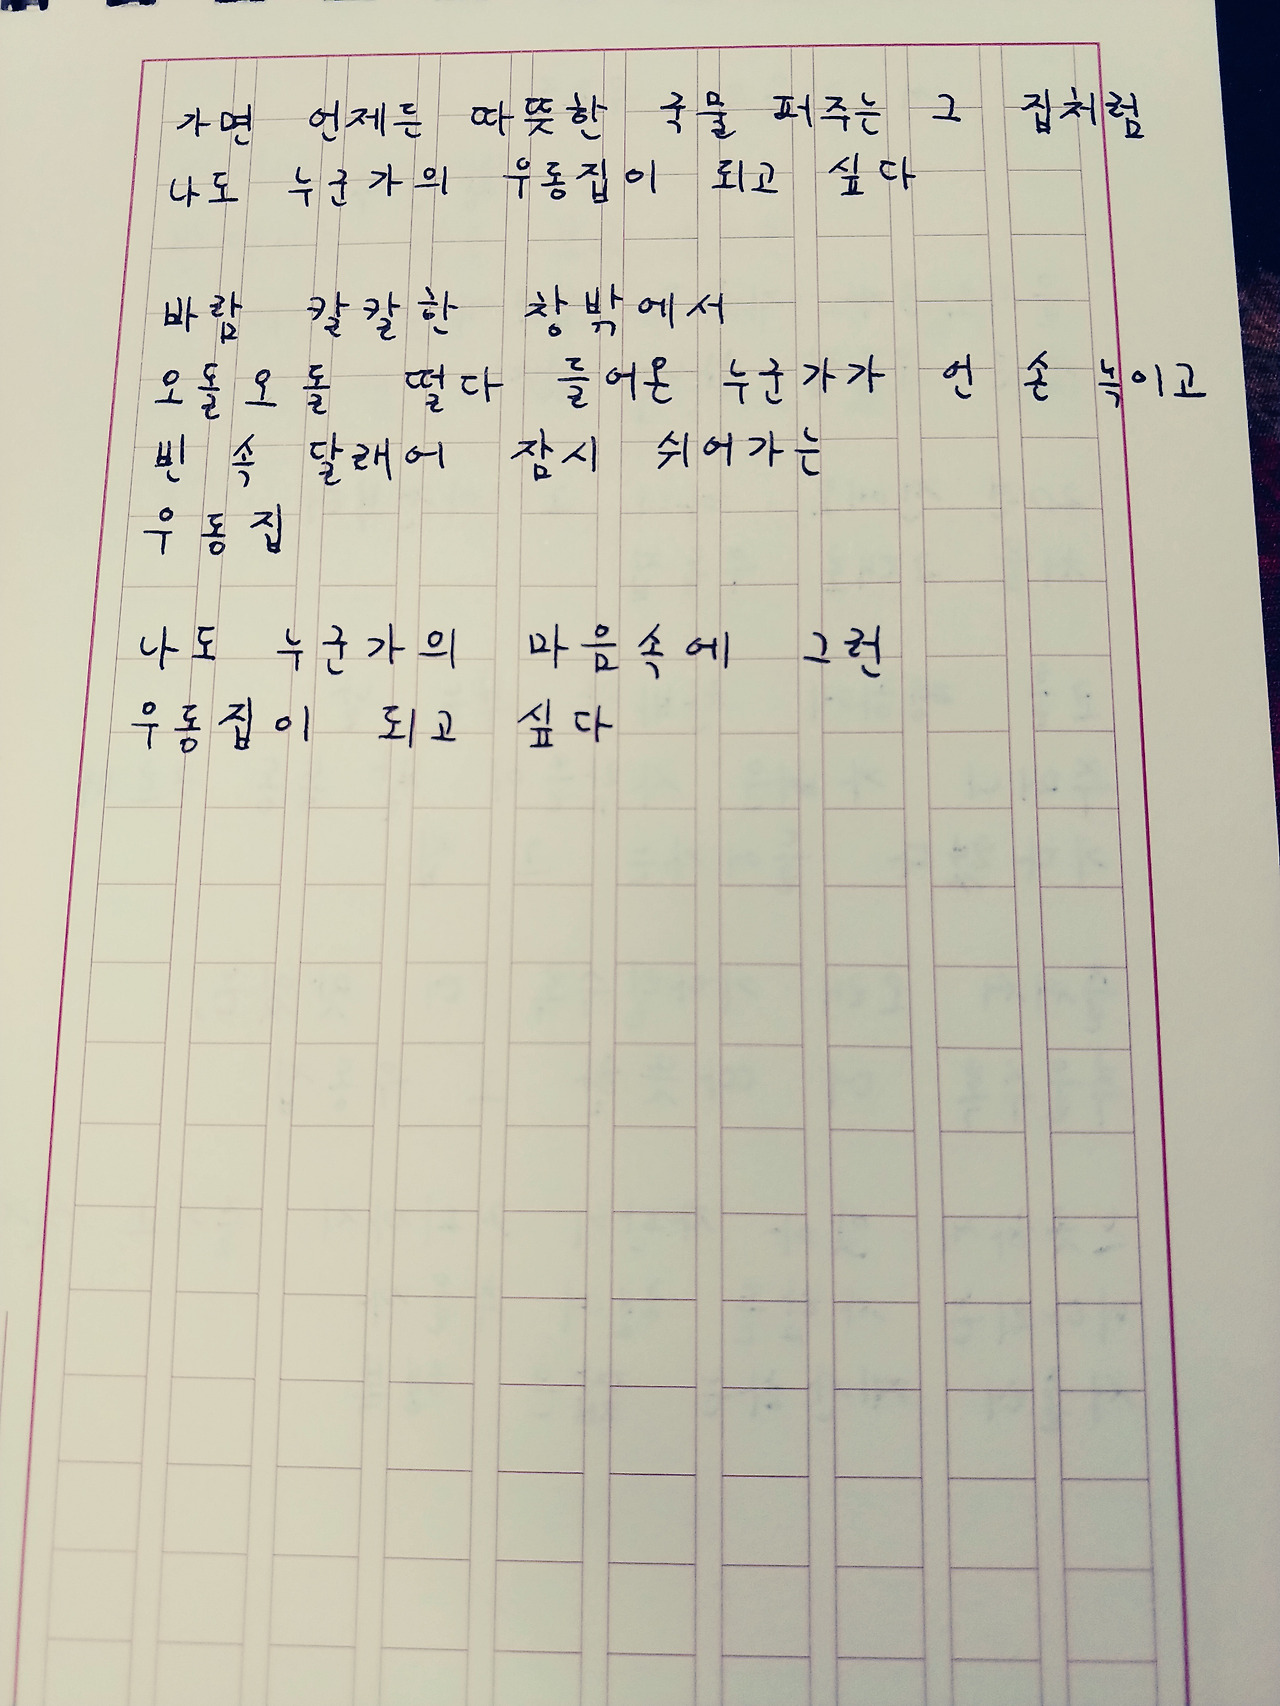 가면 언제든 따뜻한 국물 퍼주는 그 집처럼
나도 누군가의 우동집이 되고 싶다
바람 칼칼한 창밖에서
오돌오돌 떨다 들어온 누군가가 언 손 녹이고
빈 속 달래어 잠시 쉬어가는
우동집
나도 누군가의 마음속에 그런
우동집이 되고 싶다